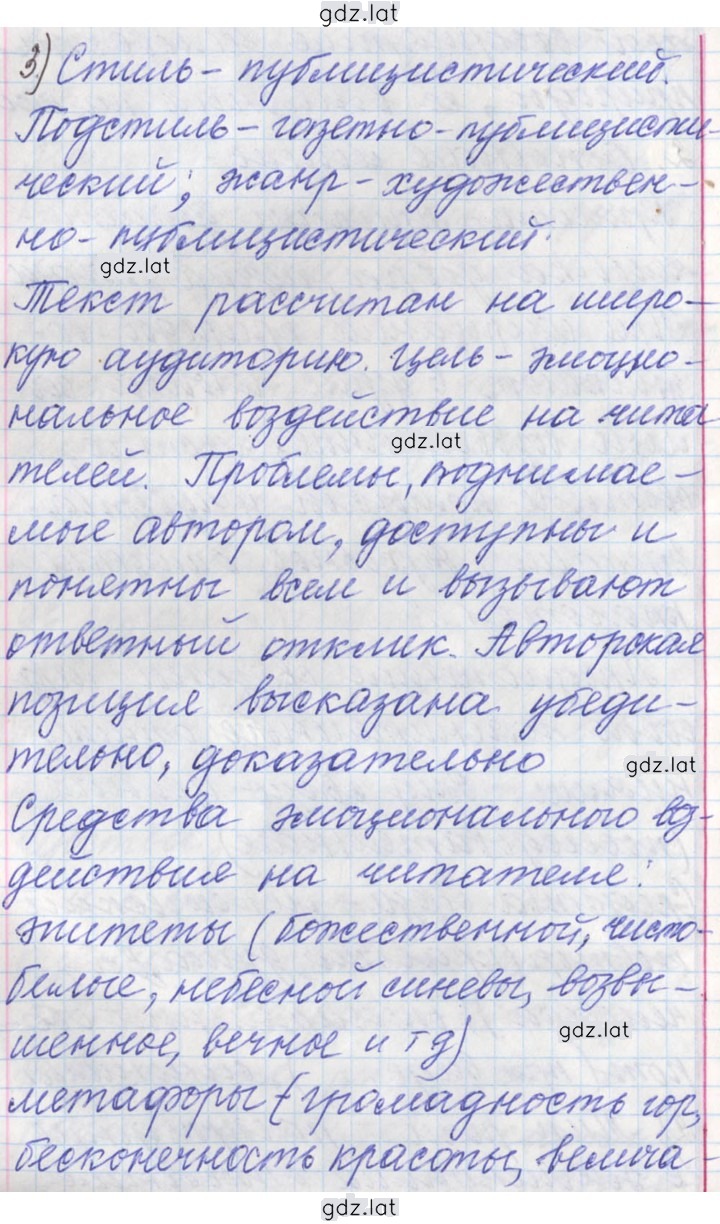 gdz.lat
3.) Стиль - публицистический.
Подстиль - газетно-публицисти-
ческий; жанр - художествен-
но-публицистический.
gdz.lat
Текст рассчитан на широ-
кую аудиторию. Цель - эмоцио-
нальное воздействие на чита
gdz.lat
телей. Проблемы, поднимае-
мые автором, доступны и
понятны всем и вызывают
ответный отклик. Авторская
позиция высказана убеди-
тельно, доказательно
gdz.lat
Средства эмоционального воз-
действия на читателя:
эпитеты (божественной, чисто-
белые, небесной синевы, возвы-
шенное, вечное и тд)
gdz.lat
метафоры (громадность гор,
бесконечность красоты, велича-
gdz.lat